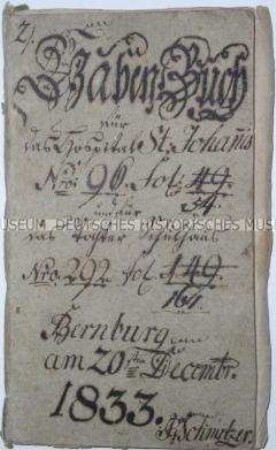 2).
Gaben Buch
für
das Hospital St. Johannis
Nro: 96. fol: 49.
54.
und für
das
Nro. 292. fol 149.
164.
Bernburg
am 20ten Decembr.
1833.
Schmutzer.
DEUTSCHES HISTORISCHES MUSEUM